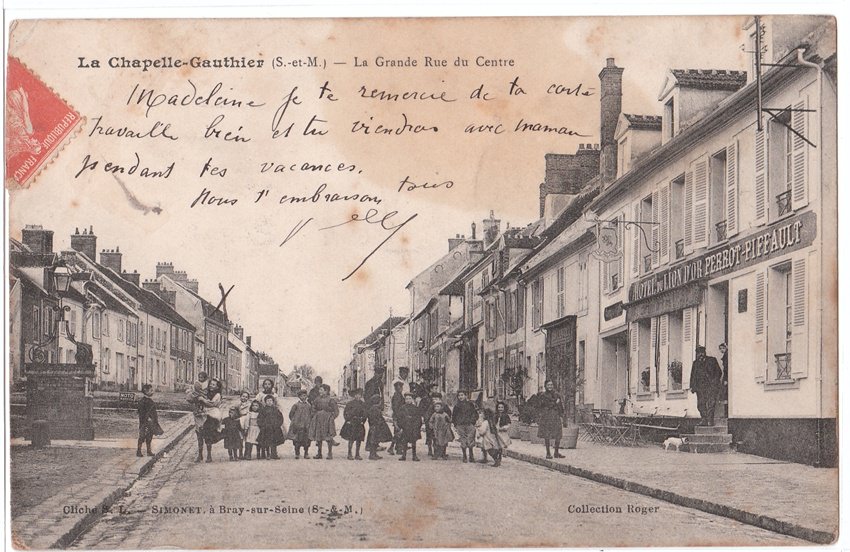 La Chapelle-Gauthier (S.-et-M.) — La Grande Rue du Centre
Madeleine je te remercie de ta carte
travaille bien et tu viendras avec maman
pendant tes vacances.
Nous t'embrassons tous
REPUBLIQUE FRANC
HOTEL DU LION D'OR PERROT-PIFFAULT
Cliché S. L. — SIMONET, à Bray-sur-Seine (S.-&-M.)
Collection Roger